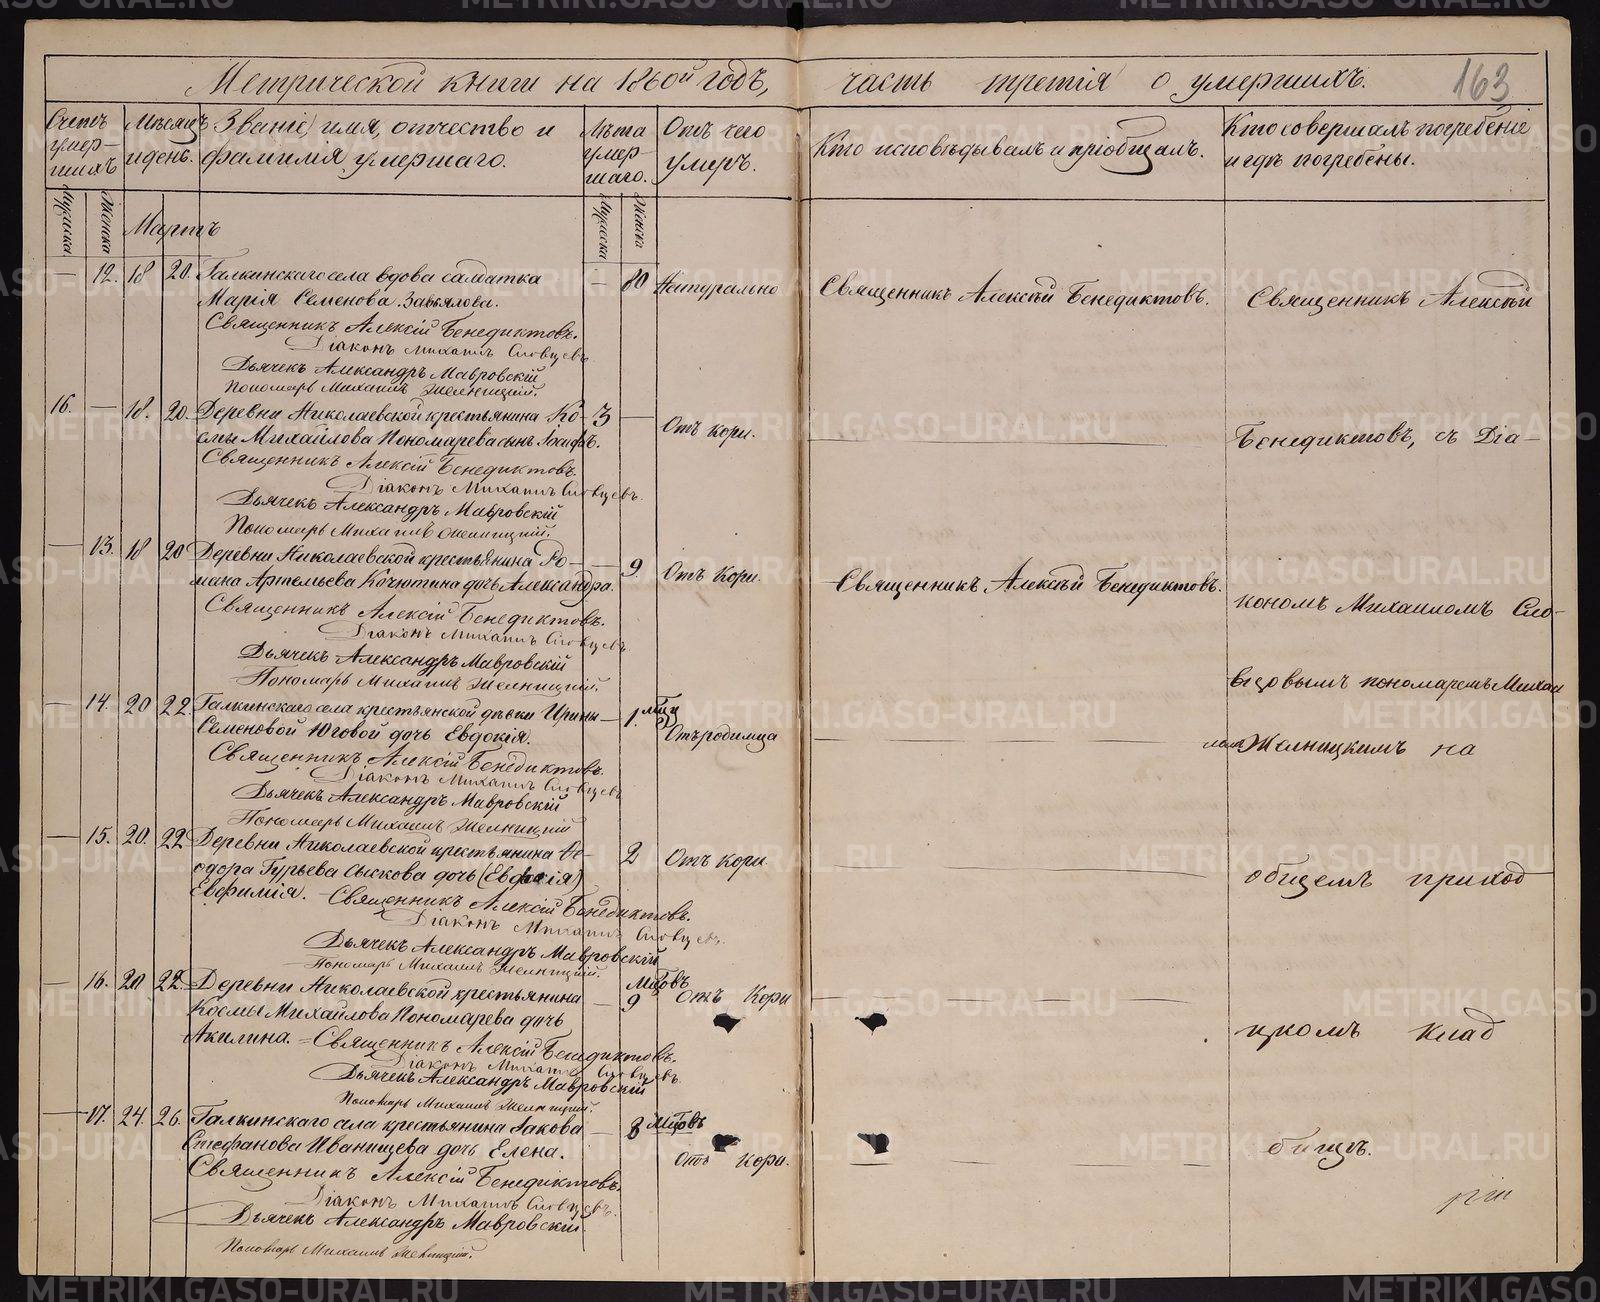 Метрической книги на 1860й годъ, часть третія о умершихъ.
163
Счетъ умер-шихъ
Мѣсяцъ и день.
Званіе, имя, отчество и
фамилія умершаго.
Лѣта умер-шаго.
Отъ чего умеръ.
Кто исповѣдывалъ и пріобщалъ.
Кто совершалъ погребеніе
и гдѣ погребены.
Мужска
Женска
Мужска
Женска
Мартъ
— 12. 18 20. Галкинскаго села вдова салдатка — 80 Натурально
Марія Семенова Завьялова.
Священникъ Алексѣй Бенедиктовъ.
Священникъ Алексѣй
Священникъ Алексій Бенедиктовъ.
Діаконъ Михаилъ Словцевъ
Дьячекъ Александръ Мавровскій
Пономарь Михаилъ Желницкій.
16. — 18. 20. Деревни Николаевской крестьянина Ко- 3 — Отъ кори.
смы Михайлова Пономарева сынъ Іосифъ.
Бенедиктовъ, съ Діа-
Священникъ Алексій Бенедиктовъ.
Діаконъ Михаилъ Словцевъ.
Дьячекъ Александръ Мавровскій
Пономарь Михаилъ Желницкій.
— 13. 18 20 Деревни Николаевской крестьянина Ро- — 9. Отъ Кори.
мана Артемьева Кочютина дочь Александра.
Священникъ Алексѣй Бенедиктовъ.
кономъ Михаиломъ Сло-
Священникъ Алексій Бенедиктовъ.
Діаконъ Михаилъ Словцевъ.
Дьячекъ Александръ Мавровскій
Пономарь Михаилъ Желницкій.
вцовымъ пономаремъ Михаи
— 14. 20 22. Галкинскаго села крестьянской дѣвки Ирины — 1. мѣц Отъ родимца
Семеновой Юговой дочь Евдокія.
ломъ Желницкимъ на
Священникъ Алексій Бенедиктовъ.
Діаконъ Михаилъ Словцевъ
Дьячекъ Александръ Мавровскій
Пономарь Михаилъ Желницкій
— 15. 20. 22 Деревни Николаевской крестьянина Ѳе- 2 Отъ кори
одора Гурьева Сыскова дочь
Евфимія. — Священникъ Алексій Бенедиктовъ.
общемъ приход
Діаконъ Михаилъ Словцевъ.
Дьячекъ Александръ Мавровскій
Пономарь Михаилъ Желницкій.
— 16. 20 22. Деревни Николаевской крестьянина — 9 мѣцовъ Отъ Кори
Космы Михайлова Пономарева дочь
Акилина. — Священникъ Алексій Бенедиктовъ.
цкомъ клад
Діаконъ Михаилъ Словцевъ.
Дьячекъ Александръ Мавровскій
Пономарь Михаилъ Желницкій.
— 17. 24. 26. Галкинскаго села крестьянина Іакова — 8 мѣцовъ Отъ Кори.
Стефанова Иванищева дочь Елена.
бищѣ.
Священникъ Алексій Бенедиктовъ.
Діаконъ Михаилъ Словцевъ.
Дьячекъ Александръ Мавровскій.
Пономарь Михаилъ Желницкій.
METRIKI.GASO-URAL.RU